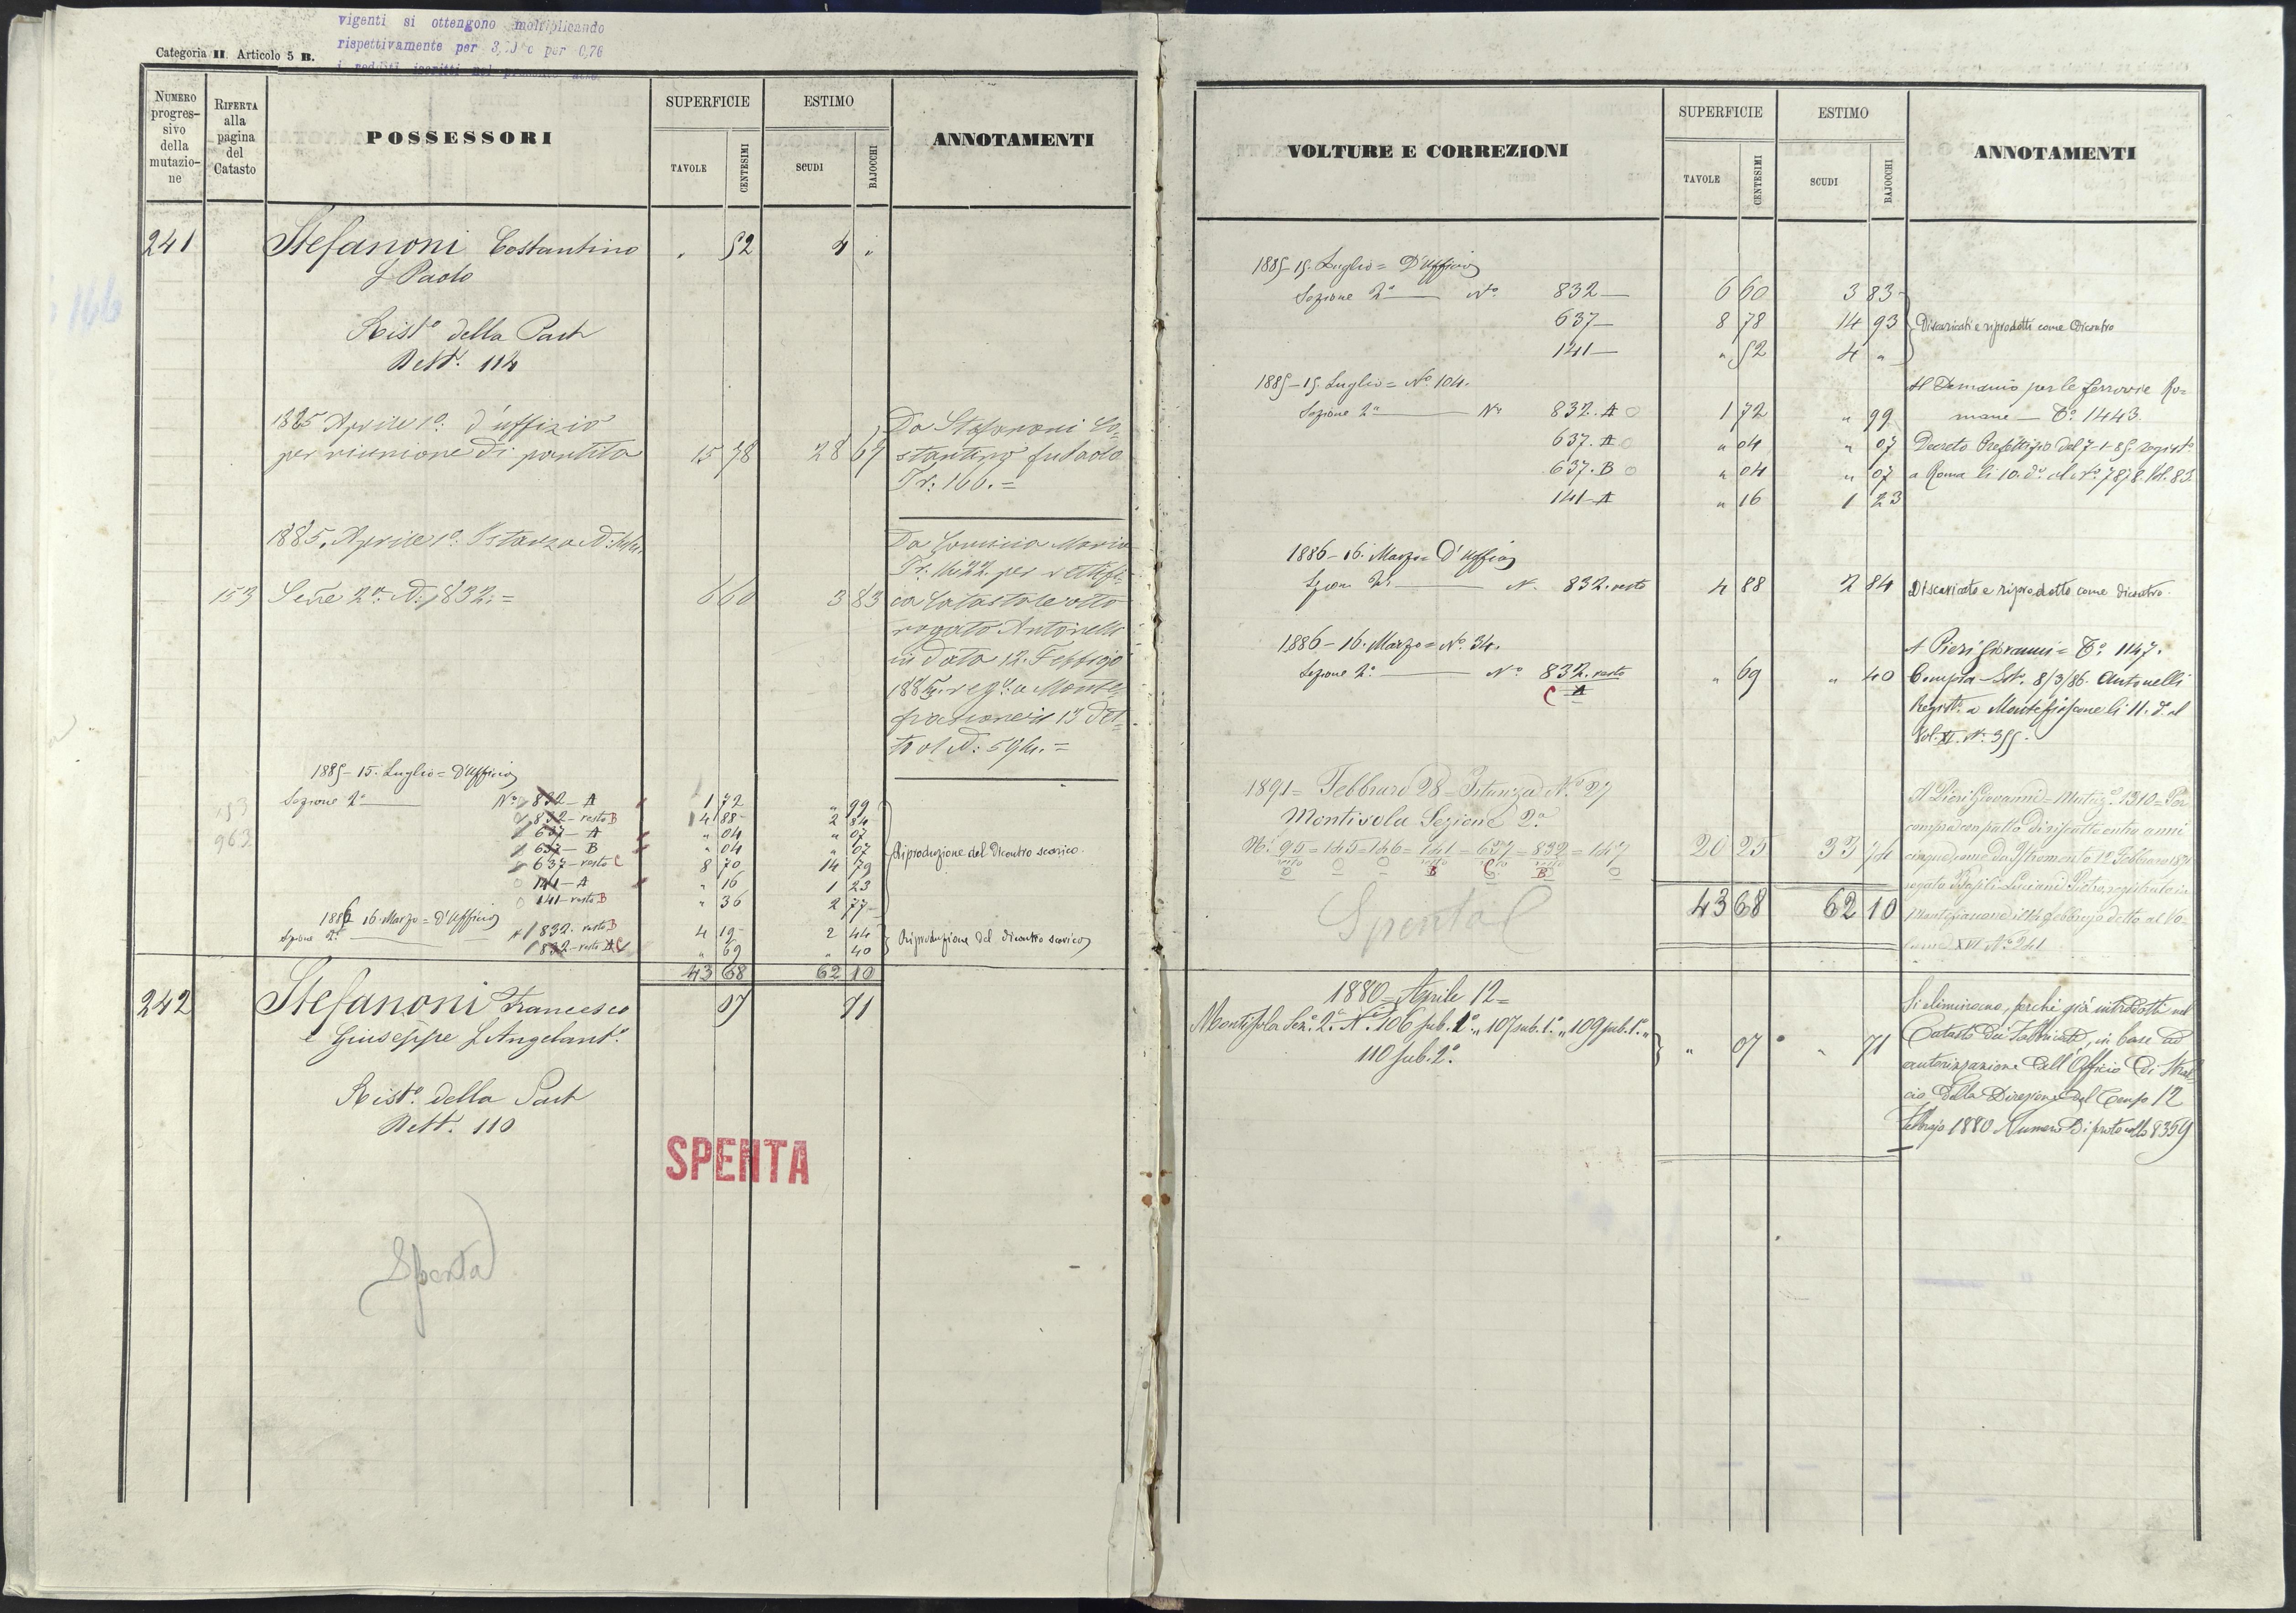 vigenti si ottengono moltiplicando
rispettivamente per 3, e per 0,76
Categoria II. Articolo 5 B.
NUMERO progres- sivo della mutazio- ne
RIFERTA alla pagina del Catasto
POSSESSORI
SUPERFICIE
TAVOLE
CENTESIMI
ESTIMO
SCUDI
BAJOCCHI
ANNOTAMENTI
166
241 Stefanoni Costantino " 52 4 "
f Paolo
Rist.o della Part
Rett. 114
1885 Aprile 1o. d'uffizio
per riunione di partita 15 78 28 69
Da Stefanoni Co=
stantino fu Paolo
Tr: 166.=
1885. Aprile 1o. Istanza N:
153 Sez.e 2a. N: 832.= 6 60 3 83
Da Maria
Tr: 1622 per rettifi=
ca Catastale atto
rogato Antonelli
in data 12. Febbrajo
1885. reg.o a Monte=
fiascone il 13 det=
to al N: 594.=
1885-15. Luglio = D'Ufficio
153 Sezione 2a N.o 832-A 1 72 " 99
832-resto B 4 88 2 84
963 637-A " 04 " 07
637-B " 04 " 07
637-resto C 8 70 14 79
141-A " 16 1 23
141-resto B " 36 2 77
Riproduzione del dicontro scarico.
1886 16. Marzo = D'Ufficio
Sezione 2a 832. resto B 4 19 2 44
832-resto A C " 69 " 40
Riproduzione del dicontro scarico
43 68 62 10
242 Stefanoni Francesco 07 71
e Giuseppe f Angelant.o
Rist.o della Part
Rett. 110
SPENTA
Spenta
VOLTURE E CORREZIONI
SUPERFICIE
TAVOLE
CENTESIMI
ESTIMO
SCUDI
BAJOCCHI
ANNOTAMENTI
1885-15. Luglio = D'Ufficio
Sezione 2a N.o 832 6 60 3 83
637 8 78 14 93
141 " 52 4 "
Discaricati e riprodotti come dicontro
1885-15. Luglio = No. 104.
Sezione 2a N.o 832. A 1 72 " 99
637. A " 04 " 07
637. B " 04 " 07
141-A " 16 1 23
Al Demanio per le ferrovie Ro=
mane — To. 1443.
Decreto Prefettizio del 7-1-85. regist.o
a Roma li 10. d.o al N.o 7878. Vol. 83.
1886-16. Marzo = D'Ufficio
Sezion 2a. N. 832. resto 4 88 2 84
Discaricato e riprodotto come dicontro.
1886-16. Marzo = No. 34.
Sezione 2a. N.o 832. resto " 69 " 40
C A
A Pieri Giovanni = To. 1147.
Compra Ist. 8/3/86. Antonelli
Regist.o a Montefiascone li 11. d. al
Vol. XI. N. 355.
1891 = Febbraro 28 = Istanza N.o 27
Montisola Sezione 2.a
N. 95 = 145 = 146 = 141 = 637 = 832 = 147 20 25 33 74
resto resto resto resto
B C B
Al Pieri Giovanni = Mutaz.e 1310 = Per
compra con patto di riscatto entro anni
cinque come da Istromento 12 Febbraro 1891
rogato Basili Luciani Pietro, registrato in
Montefiascone il 14 febbrajo detto al Vo=
lume XVI No. 241
43 68 62 10
Spenta
1880 = Aprile 12 =
Montisola Sez.e 2.a N.o 106 sub. 2.o " 107 sub. 1.o " 109 sub. 1.o "
110 sub. 2.o " 07 " 71
Si eliminano, perchè già introdotti nel
Catasto dei Fabbricati, in base ad
autorizzazione dell'Officio di Stral=
cio della Direzione del Censo 12
Febbrajo 1880 Numero di protocollo 8359